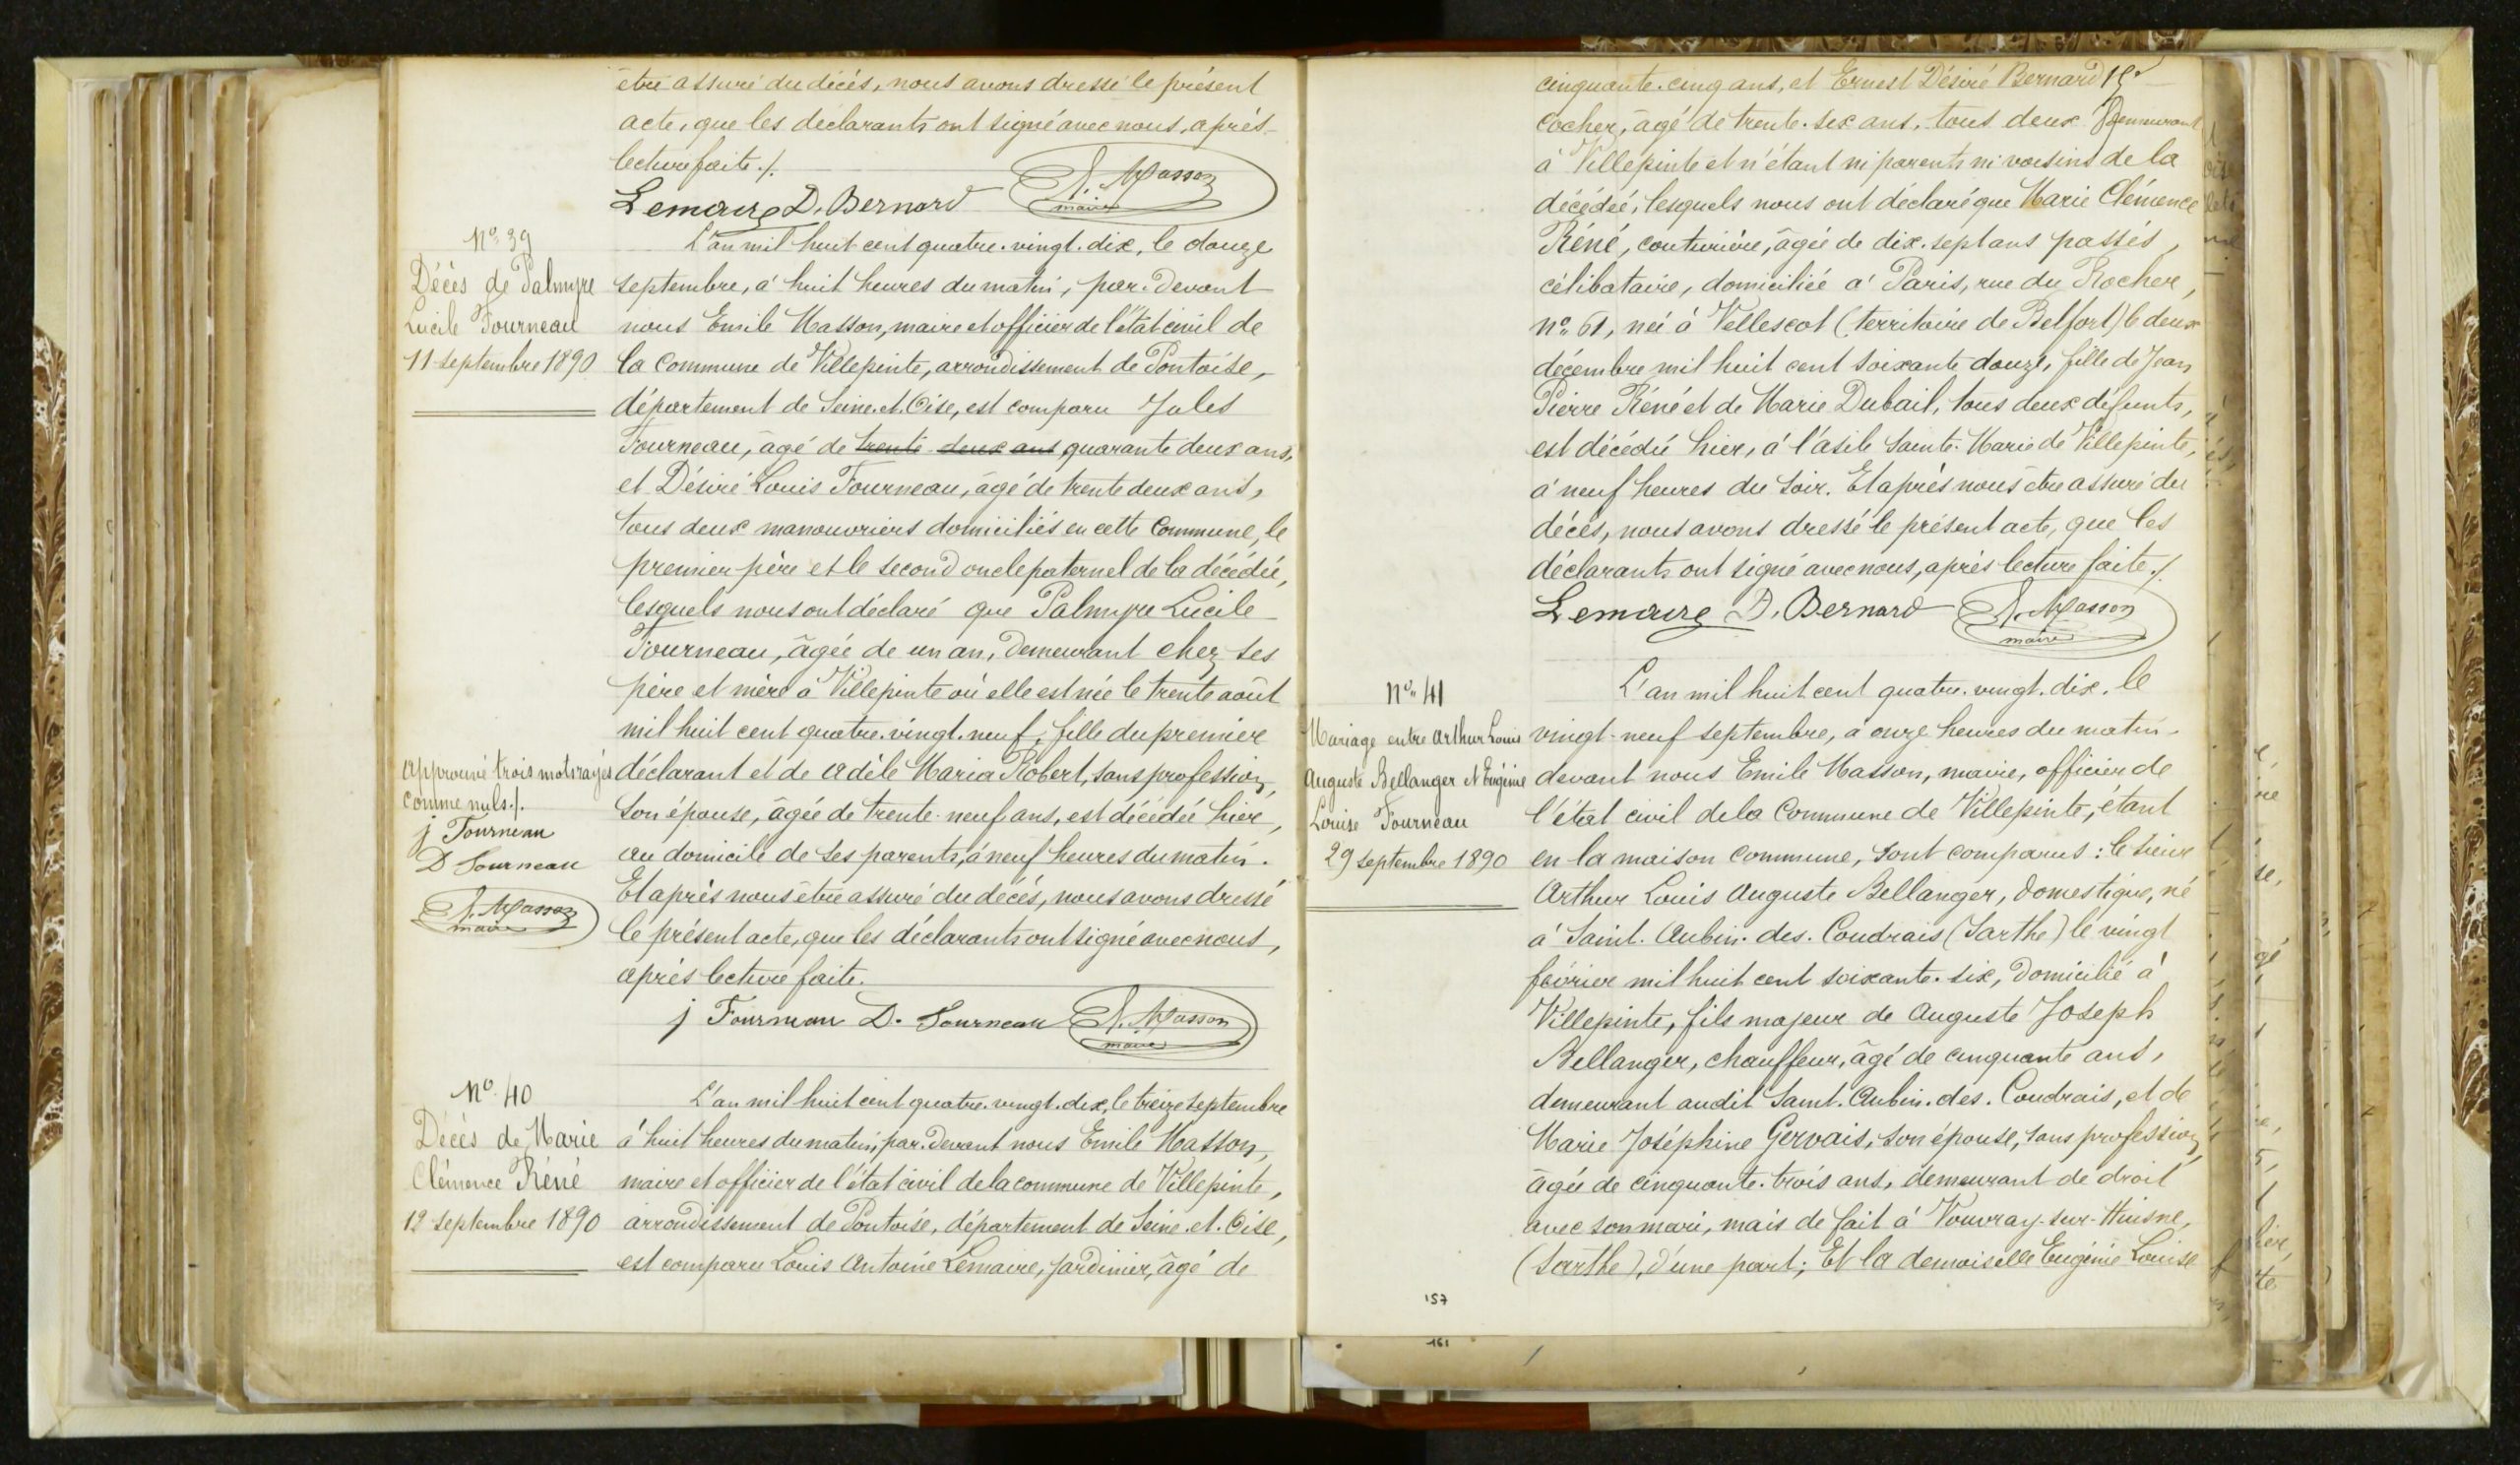 être assuré du décès, nous avons dressé le présent
acte, que les déclarants ont signé avec nous, après
lecture faite ./.
Lemaire D. Bernard E. Masson
maire
N° 39
Décès de Palmyre
Lucile Fourneau
11 septembre 1890
L'an mil huit cent quatre-vingt-dix, le douze
septembre, à huit heures du matin, par-devant
nous Emile Masson, maire et officier de l'état civil de
la Commune de Villepinte, arrondissement de Pontoise,
département de Seine-et-Oise, est comparu Jules
Fourneau, âgé de trente deux ans quarante deux ans,
et Désiré Louis Fourneau, âgé de trente deux ans,
tous deux manouvriers domiciliés en cette Commune, le
premier père et le second oncle paternel de la décédée,
lesquels nous ont déclaré que Palmyre Lucile
Fourneau, âgée de un an, demeurant chez ses
père et mère à Villepinte où elle est née le trente août
mil huit cent quatre-vingt-neuf, fille du premier
déclarant et de Adèle Maria Robert, sans profession,
son épouse, âgée de trente-neuf ans, est décédée hier,
au domicile de ses parents, à neuf heures du matin.
Et après nous être assuré du décès, nous avons dressé
le présent acte, que les déclarants ont signé avec nous,
après lecture faite.
j Fourneau D. Fourneau E. Masson
maire
Approuvé trois mots rayés
comme nuls ./.
j Fourneau
D Fourneau
E. Masson
maire
N° 40
Décès de Marie
Clémence Réné
12 septembre 1890
L'an mil huit cent quatre-vingt-dix, le treize septembre
à huit heures du matin, par-devant nous Emile Masson,
maire et officier de l'état civil de la commune de Villepinte,
arrondissement de Pontoise, département de Seine-et-Oise,
est comparu Louis Antoine Lemaire, jardinier, âgé de
cinquante-cinq ans, et Ernest Désiré Bernard
cocher, âgé de trente-six ans, tous deux demeurant
à Villepinte et n'étant ni parents ni voisins de la
décédée, lesquels nous ont déclaré que Marie Clémence
Réné, couturière, âgée de dix-sept ans passés,
célibataire, domiciliée à Paris, rue du Rocher,
n° 61, née à Vellescot (territoire de Belfort) le deux
décembre mil huit cent soixante douze, fille de Jean
Pierre Réné et de Marie Dubail, tous deux défunts,
est décédée hier, à l'asile Sainte-Marie de Villepinte,
à neuf heures du soir. Et après nous être assuré du
décès, nous avons dressé le présent acte, que les
déclarants ont signé avec nous, après lecture faite ./.
Lemaire D. Bernard E. Masson
maire
N° 41
Mariage entre Arthur Louis
Auguste Bellanger et Eugénie
Louise Fourneau
29 septembre 1890
L'an mil huit cent quatre-vingt-dix, le
vingt-neuf septembre, à onze heures du matin
devant nous Emile Masson, maire, officier de
l'état civil de la Commune de Villepinte, étant
en la maison commune, sont comparus : le sieur
Arthur Louis Auguste Bellanger, domestique, né
à Saint-Aubin-des-Coudrais (Sarthe) le vingt
février mil huit cent soixante-six, domicilié à
Villepinte, fils majeur de Auguste Joseph
Bellanger, chauffeur, âgé de cinquante ans,
demeurant audit Saint-Aubin-des-Coudrais, et de
Marie Joséphine Gervais, son épouse, sans profession,
âgée de cinquante-trois ans, demeurant de droit
avec son mari, mais de fait à Vouvray-sur-Huisne,
(Sarthe), d'une part ; Et la demoiselle Eugénie Louise
157
161